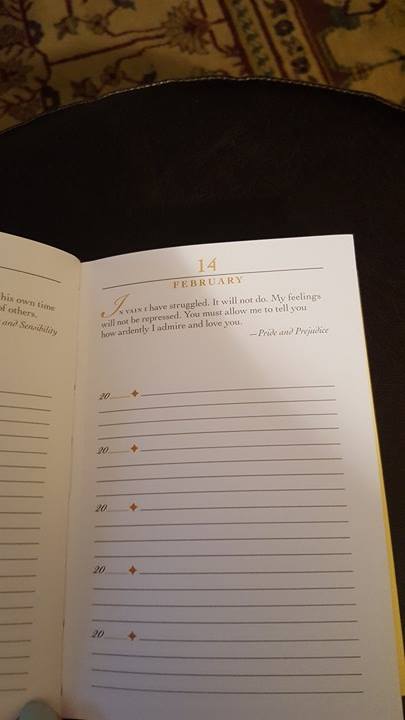 his own time
of others.
and Sensibility
14
FEBRUARY
IN VAIN I have struggled. It will not do. My feelings
will not be repressed. You must allow me to tell you
how ardently I admire and love you.
—Pride and Prejudice
20
20
20
20
20